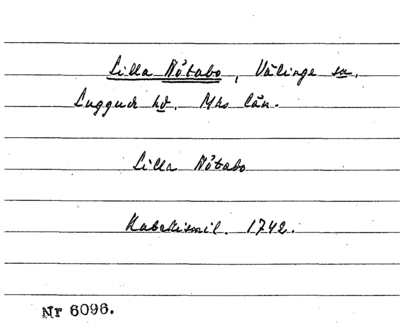 Lilla Nötabo, Vålinge sn.
Luggude hd. Mhs län.
Lilla Nötabo
1742.
Nr 6096.